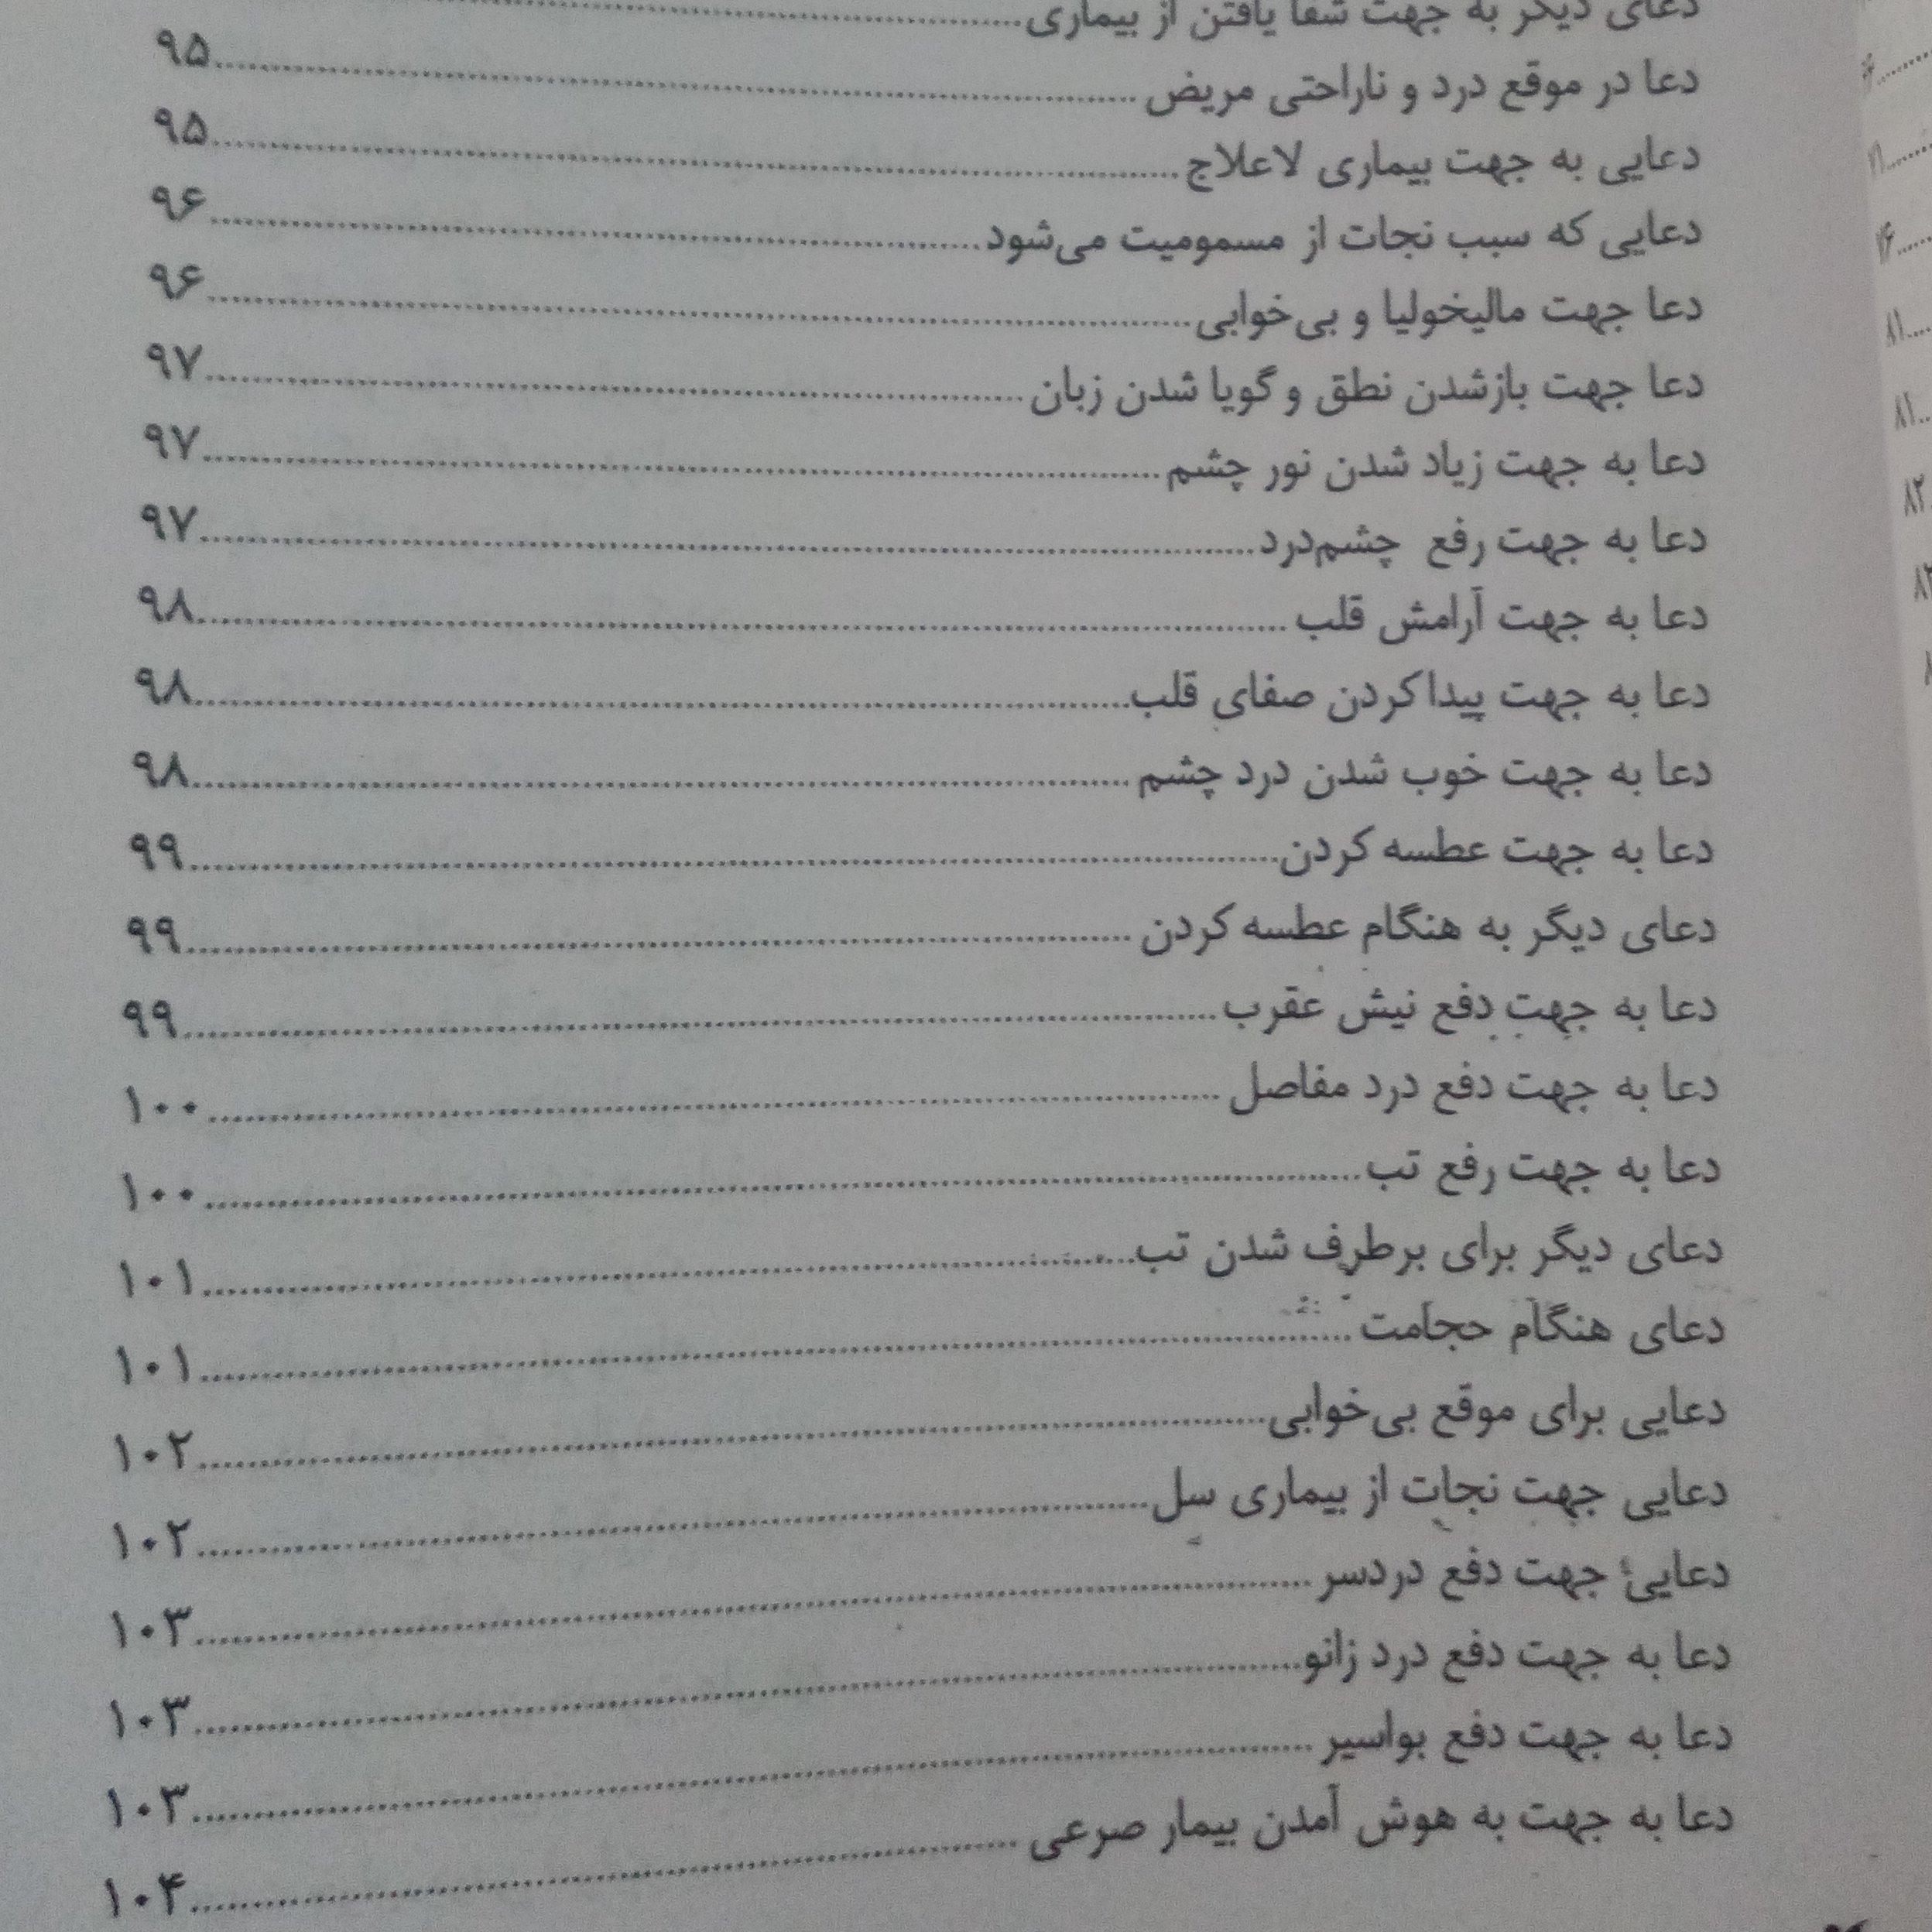 دعای دیگر به جهت شفا یافتن از بیماری
دعا در موقع درد و ناراحتی مریض ۹۵
دعایی به جهت بیماری لاعلاج ۹۵
دعایی که سبب نجات از مسمومیت می‌شود ۹۶
دعا جهت مالیخولیا و بی‌خوابی ۹۶
دعا جهت بازشدن نطق و گویا شدن زبان ۹۷
دعا به جهت زیاد شدن نور چشم ۹۷
دعا به جهت رفع چشم‌درد ۹۷
دعا به جهت آرامش قلب ۹۸
دعا به جهت پیدا کردن صفای قلب ۹۸
دعا به جهت خوب شدن درد چشم ۹۸
دعا به جهت عطسه کردن ۹۹
دعای دیگر به هنگام عطسه کردن ۹۹
دعا به جهت دفع نیش عقرب ۹۹
دعا به جهت دفع درد مفاصل ۱۰۰
دعا به جهت رفع تب ۱۰۰
دعای دیگر برای برطرف شدن تب ۱۰۱
دعای هنگام حجامت ۱۰۱
دعایی برای موقع بی‌خوابی ۱۰۲
دعایی جهت نجات از بیماری سل ۱۰۲
دعایی جهت دفع دردسر ۱۰۳
دعا به جهت دفع درد زانو ۱۰۳
دعا به جهت دفع بواسیر ۱۰۳
دعا به جهت به هوش آمدن بیمار صرعی ۱۰۴